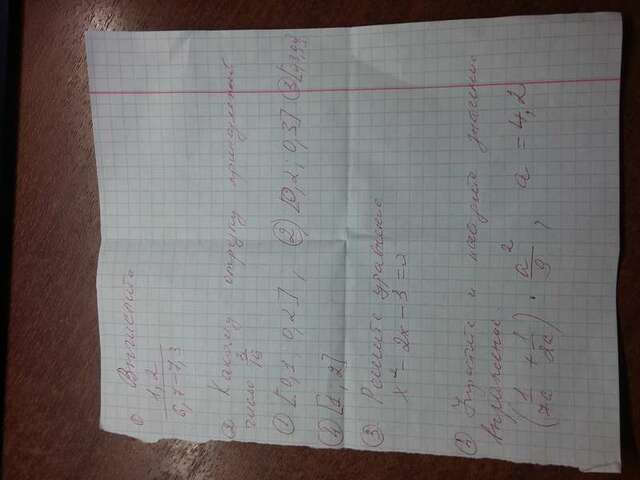 ① Вычислите
1,2
6,7-7,3
② Какому отрезку принадлежит
число 3/16
① [0,1; 0,2], ② [0,2; 0,3] ③
④ [1; 2]
③ Решите уравнение
x² - 2x - 3 = 0
④ Упростите и найдите значение
выражение
(1/7a + 1/2a) · a²/9, a = 4,2